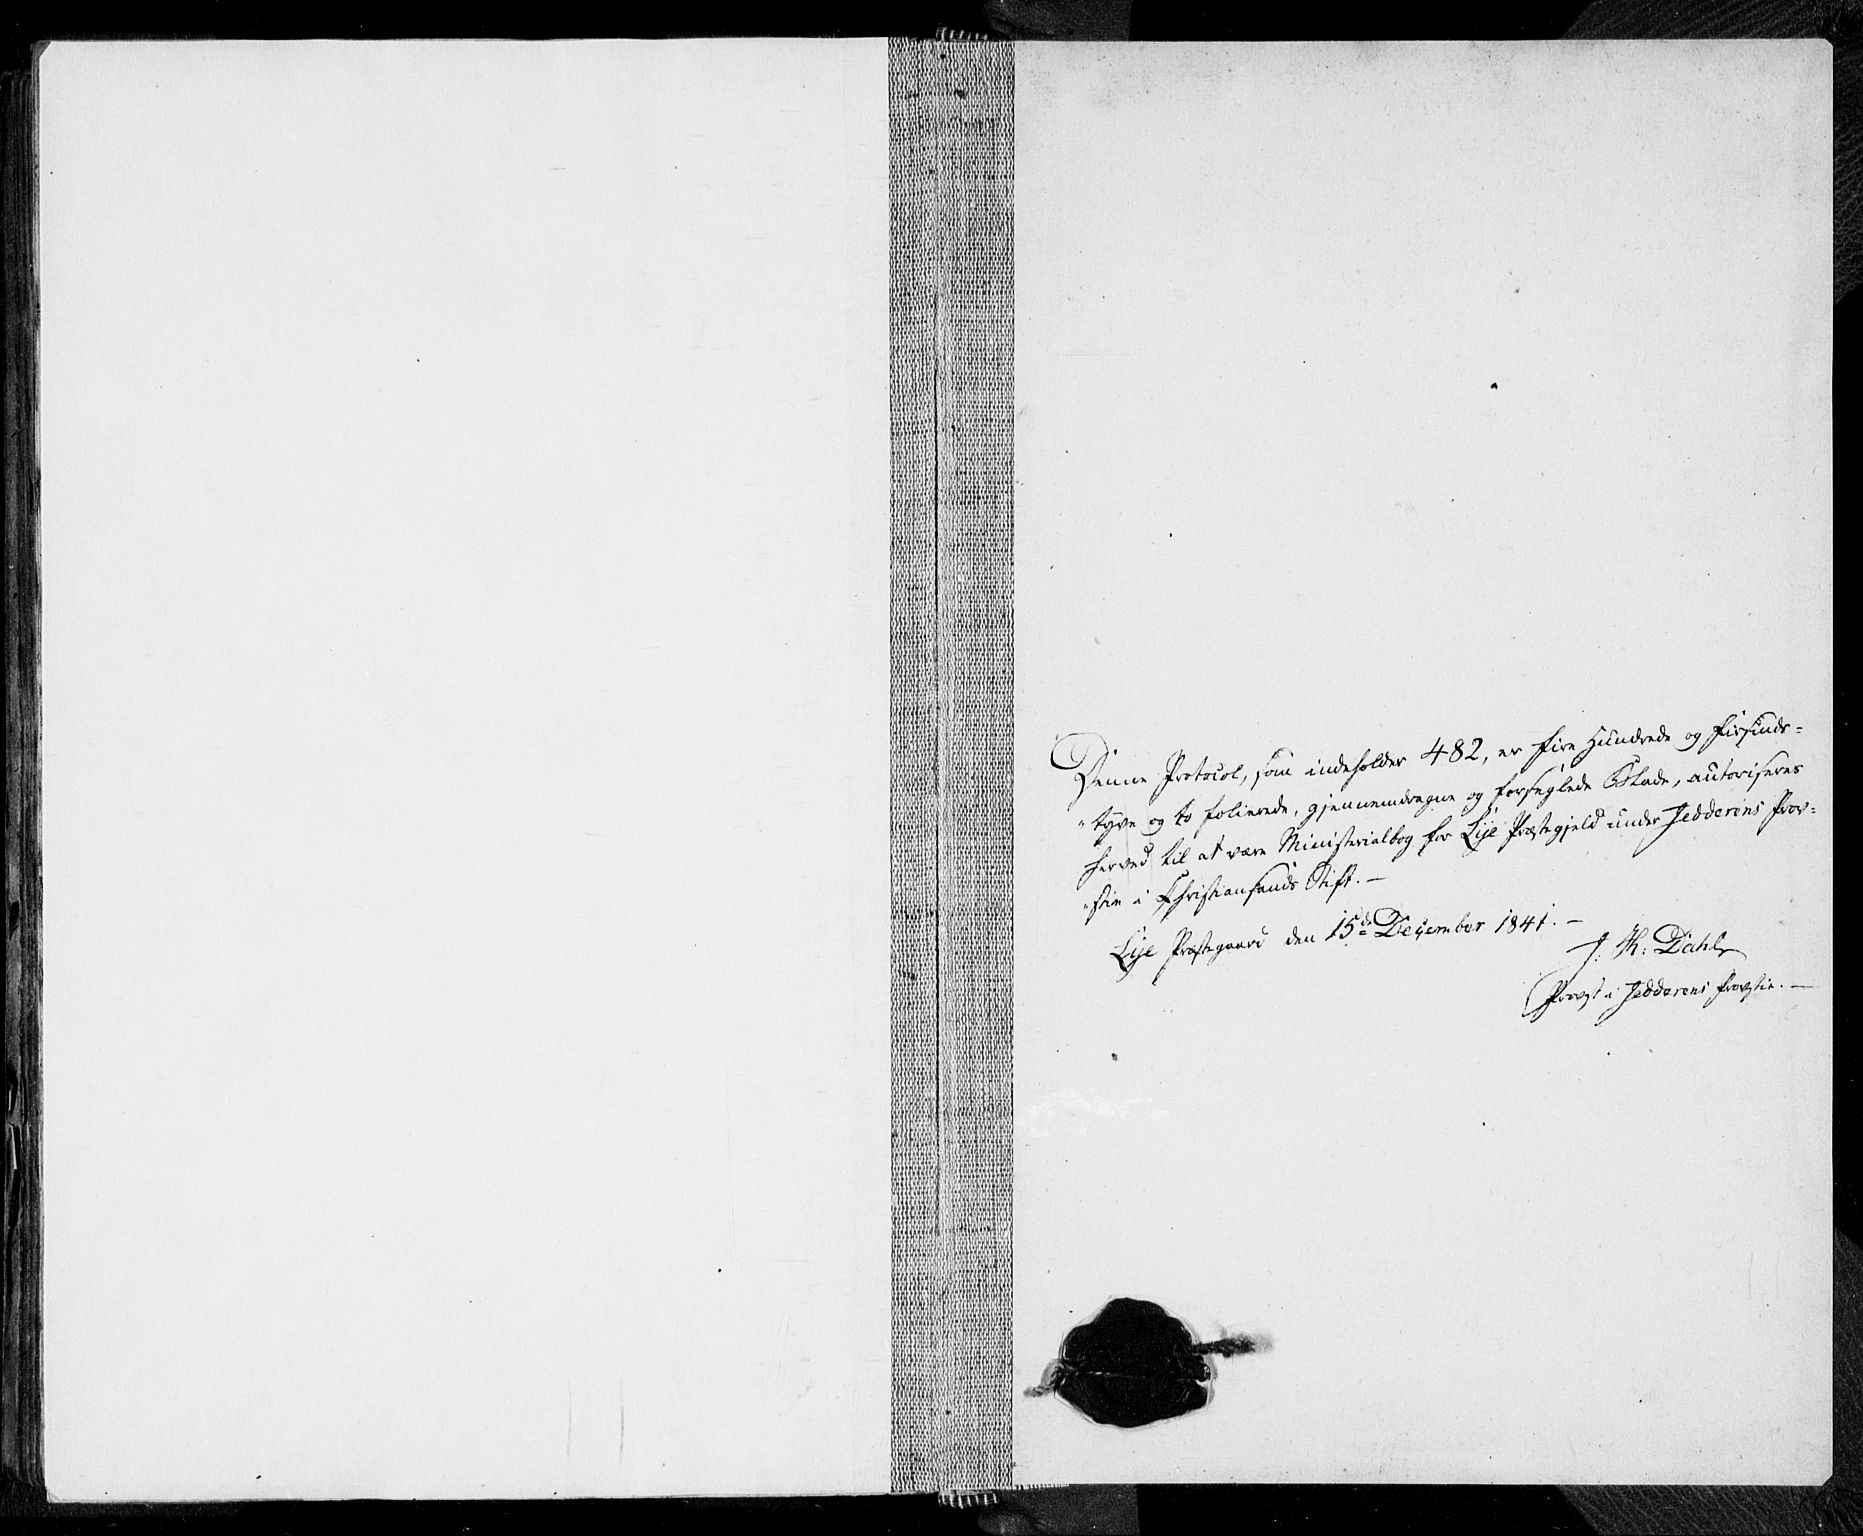 Denne Protocol, som indeholder 482, er fire Hundrede og Firsinds=
"tyve og to folierede, gjennemdragne og forseglede Blade, autoriseres
herved til at være Ministerialbog for Lije Præstegjeld under Jedderens Prov=
"stie i Christiansands Stift. —
Lije Præstegaard den 15de December 1841. —
J. K: Dahl
Provst i Jedderens Provstie. —